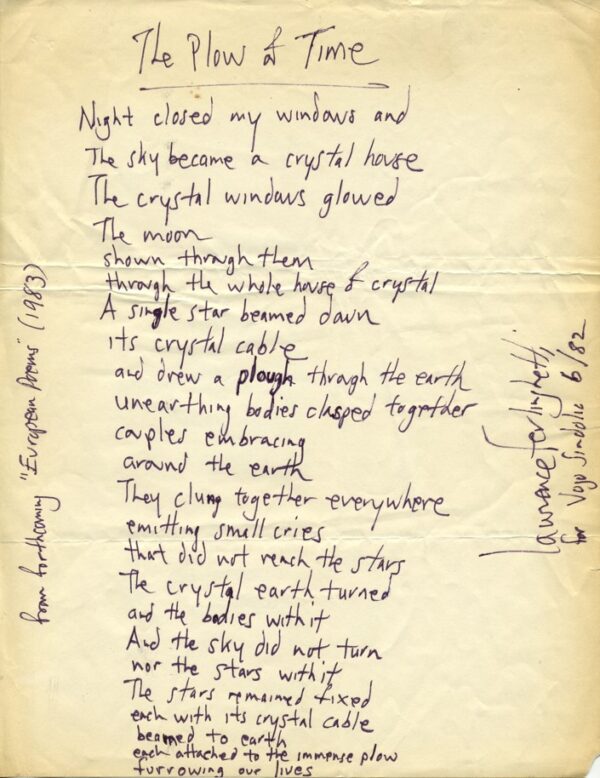 The Plow of Time
Night closed my windows and
The sky became a crystal house
The crystal windows glowed
The moon
shown through them
through the whole house of crystal
A single star beamed down
its crystal cable
and drew a plough through the earth
unearthing bodies clasped together
couples embracing
around the earth
They clung together everywhere
emitting small cries
that did not reach the stars
The crystal earth turned
and the bodies with it
And the sky did not turn
nor the stars with it
The stars remained fixed
each with its crystal cable
beamed to earth
each attached to the immense plow
furrowing our lives
from forthcoming "European Poems" (1983)
Lawrence Ferlinghetti,
for Vojo Sindolic 6/82